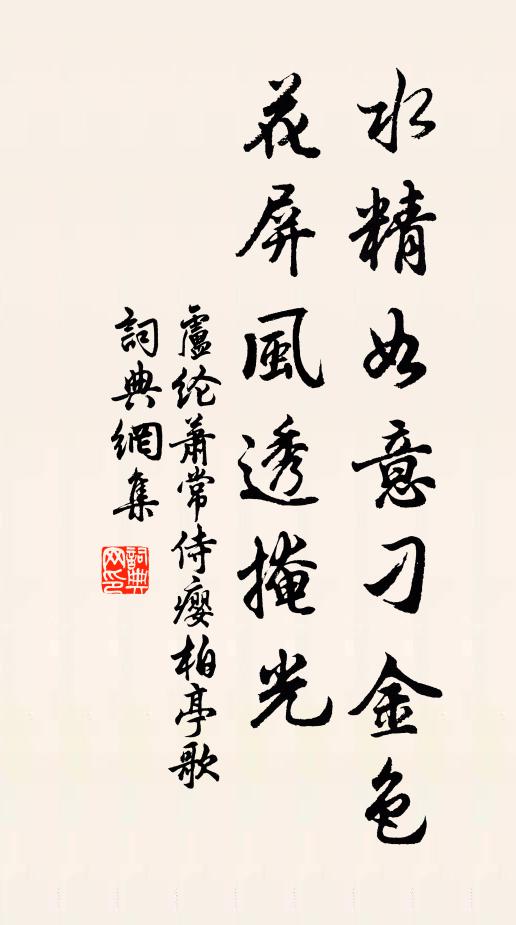 水精如意刁金色
花屏風透掩光
盧纶蕭常侍癭柏亭歌
詞典網集
詞典网印